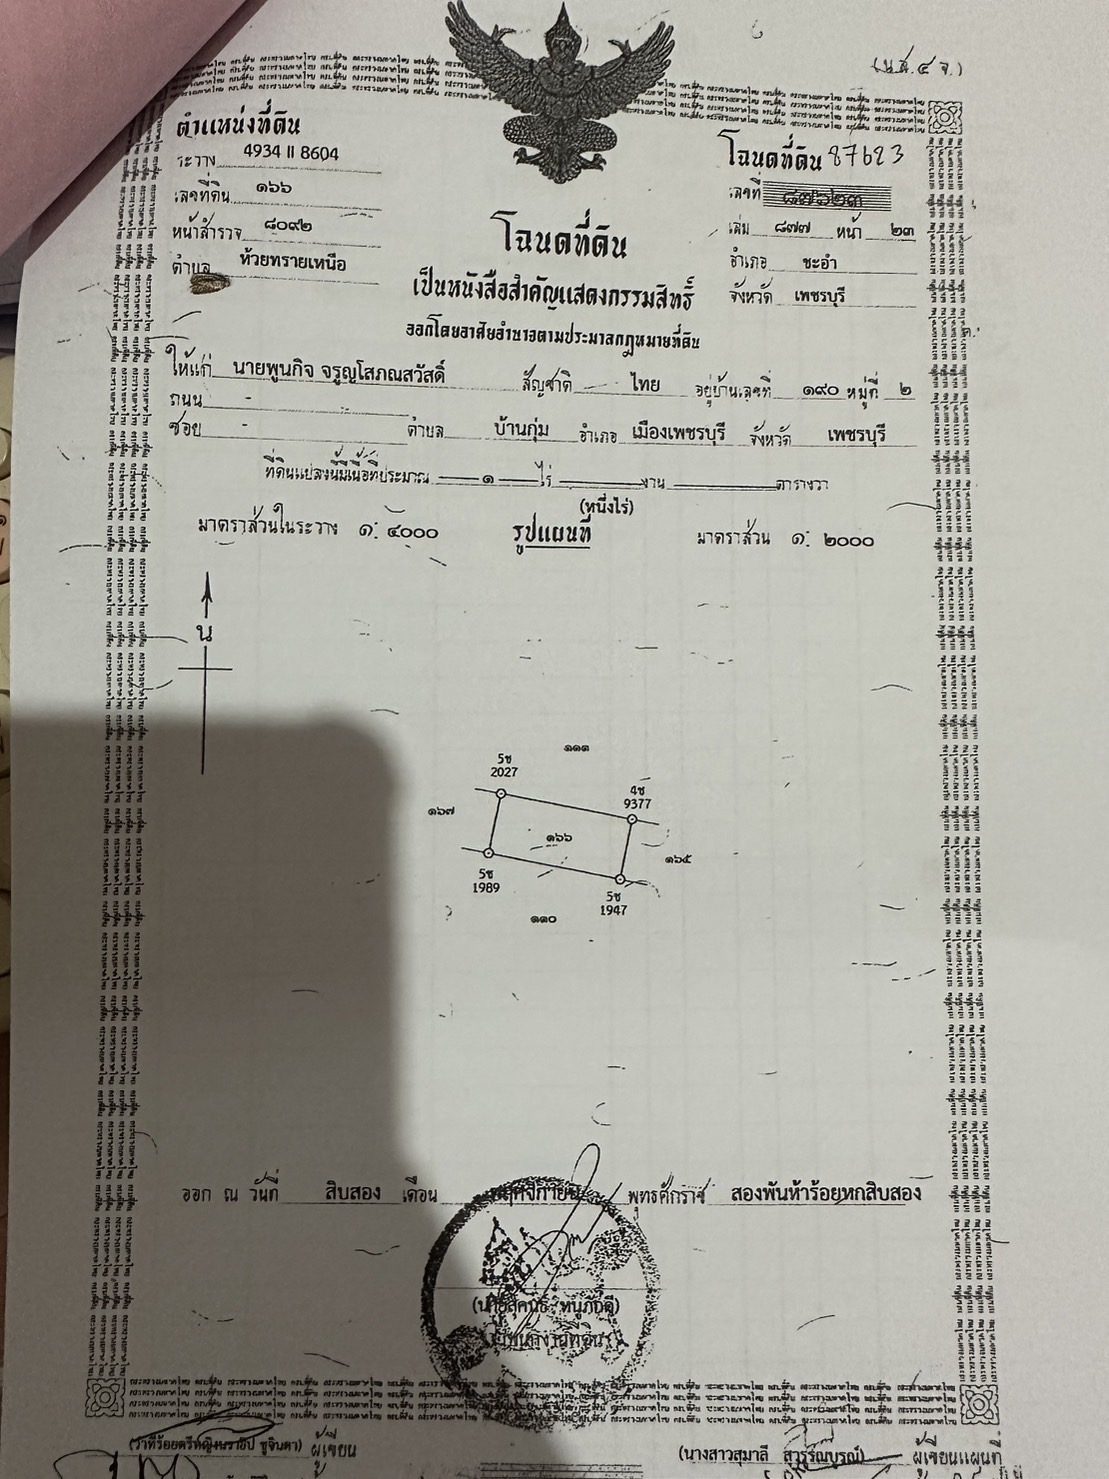 (น.ส.๔ จ.)
ตำแหน่งที่ดิน
ระวาง 4934 II 8604
เลขที่ดิน ๑๖๖
หน้าสำรวจ ๘๐๙๒
ตำบล ห้วยทรายเหนือ
โฉนดที่ดิน 87623
เลขที่ ๘๗๖๒๓
เล่ม ๘๗๗ หน้า ๒๓
อำเภอ ชะอำ
จังหวัด เพชรบุรี
โฉนดที่ดิน
เป็นหนังสือสำคัญแสดงกรรมสิทธิ์
ออกโดยอาศัยอำนาจตามประมวลกฎหมายที่ดิน
ให้แก่ นายพูนกิจ จรูญโสภณสวัสดิ์ สัญชาติ ไทย อยู่บ้านเลขที่ ๑๙๐ หมู่ที่ ๒
ถนน -
ซอย - ตำบล บ้านกุ่ม อำเภอ เมืองเพชรบุรี จังหวัด เพชรบุรี
ที่ดินแปลงนี้มีเนื้อที่ประมาณ ๑ ไร่ งาน ตารางวา
(หนึ่งไร่)
มาตราส่วนในระวาง ๑: ๔๐๐๐ รูปแผนที่ มาตราส่วน ๑: ๒๐๐๐
น
๑๑๑
5ช
2027
4ช
9377
๑๖๗
๑๖๖
๑๖๕
5ช
1989
5ช
1947
๑๑๐
ออก ณ วันที่ สิบสอง เดือน พฤศจิกายน พุทธศักราช สองพันห้าร้อยหกสิบสอง
ผู้เขียน
(นางสาวสุมาลี สุวรรณบูรณ์) ผู้เขียนแผนที่